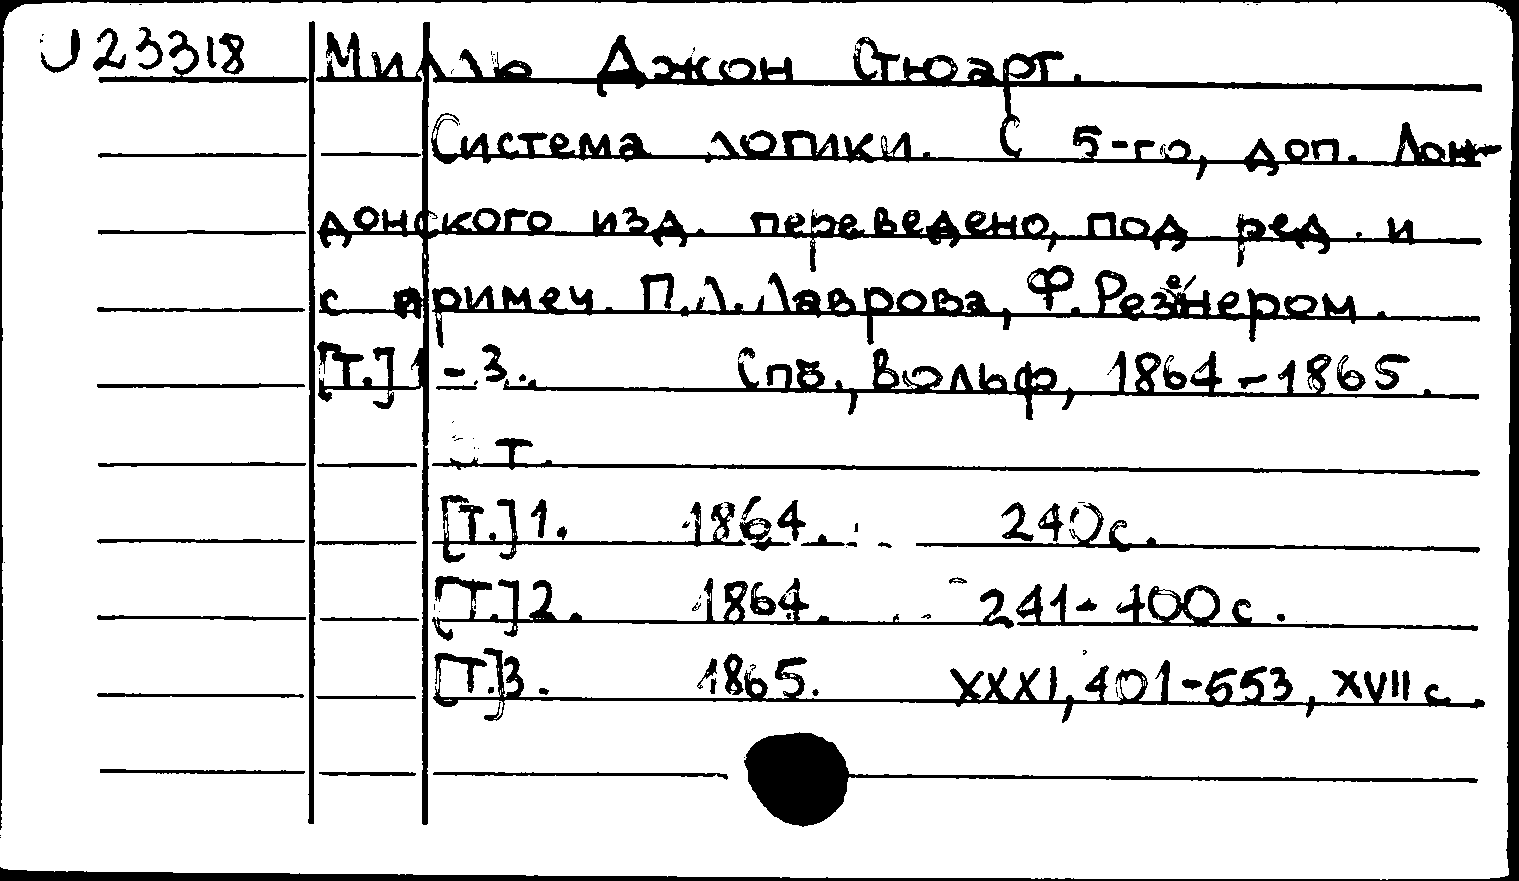 U23318 Милль Джон Стюарт.
Система логики. С 5-го, доп. Лон-
донского изд. переведено, под ред. и
с примеч. П.Л. Лаврова, Ф. Резенером.
[Т.] 1-3. Спб., Вольф, 1864-1865.
3 т.
[Т.] 1. 1864. 240с.
[Т.] 2. 1864. 241-400с.
[Т.] 3. 1865. XXXI, 401-553, XVII с.